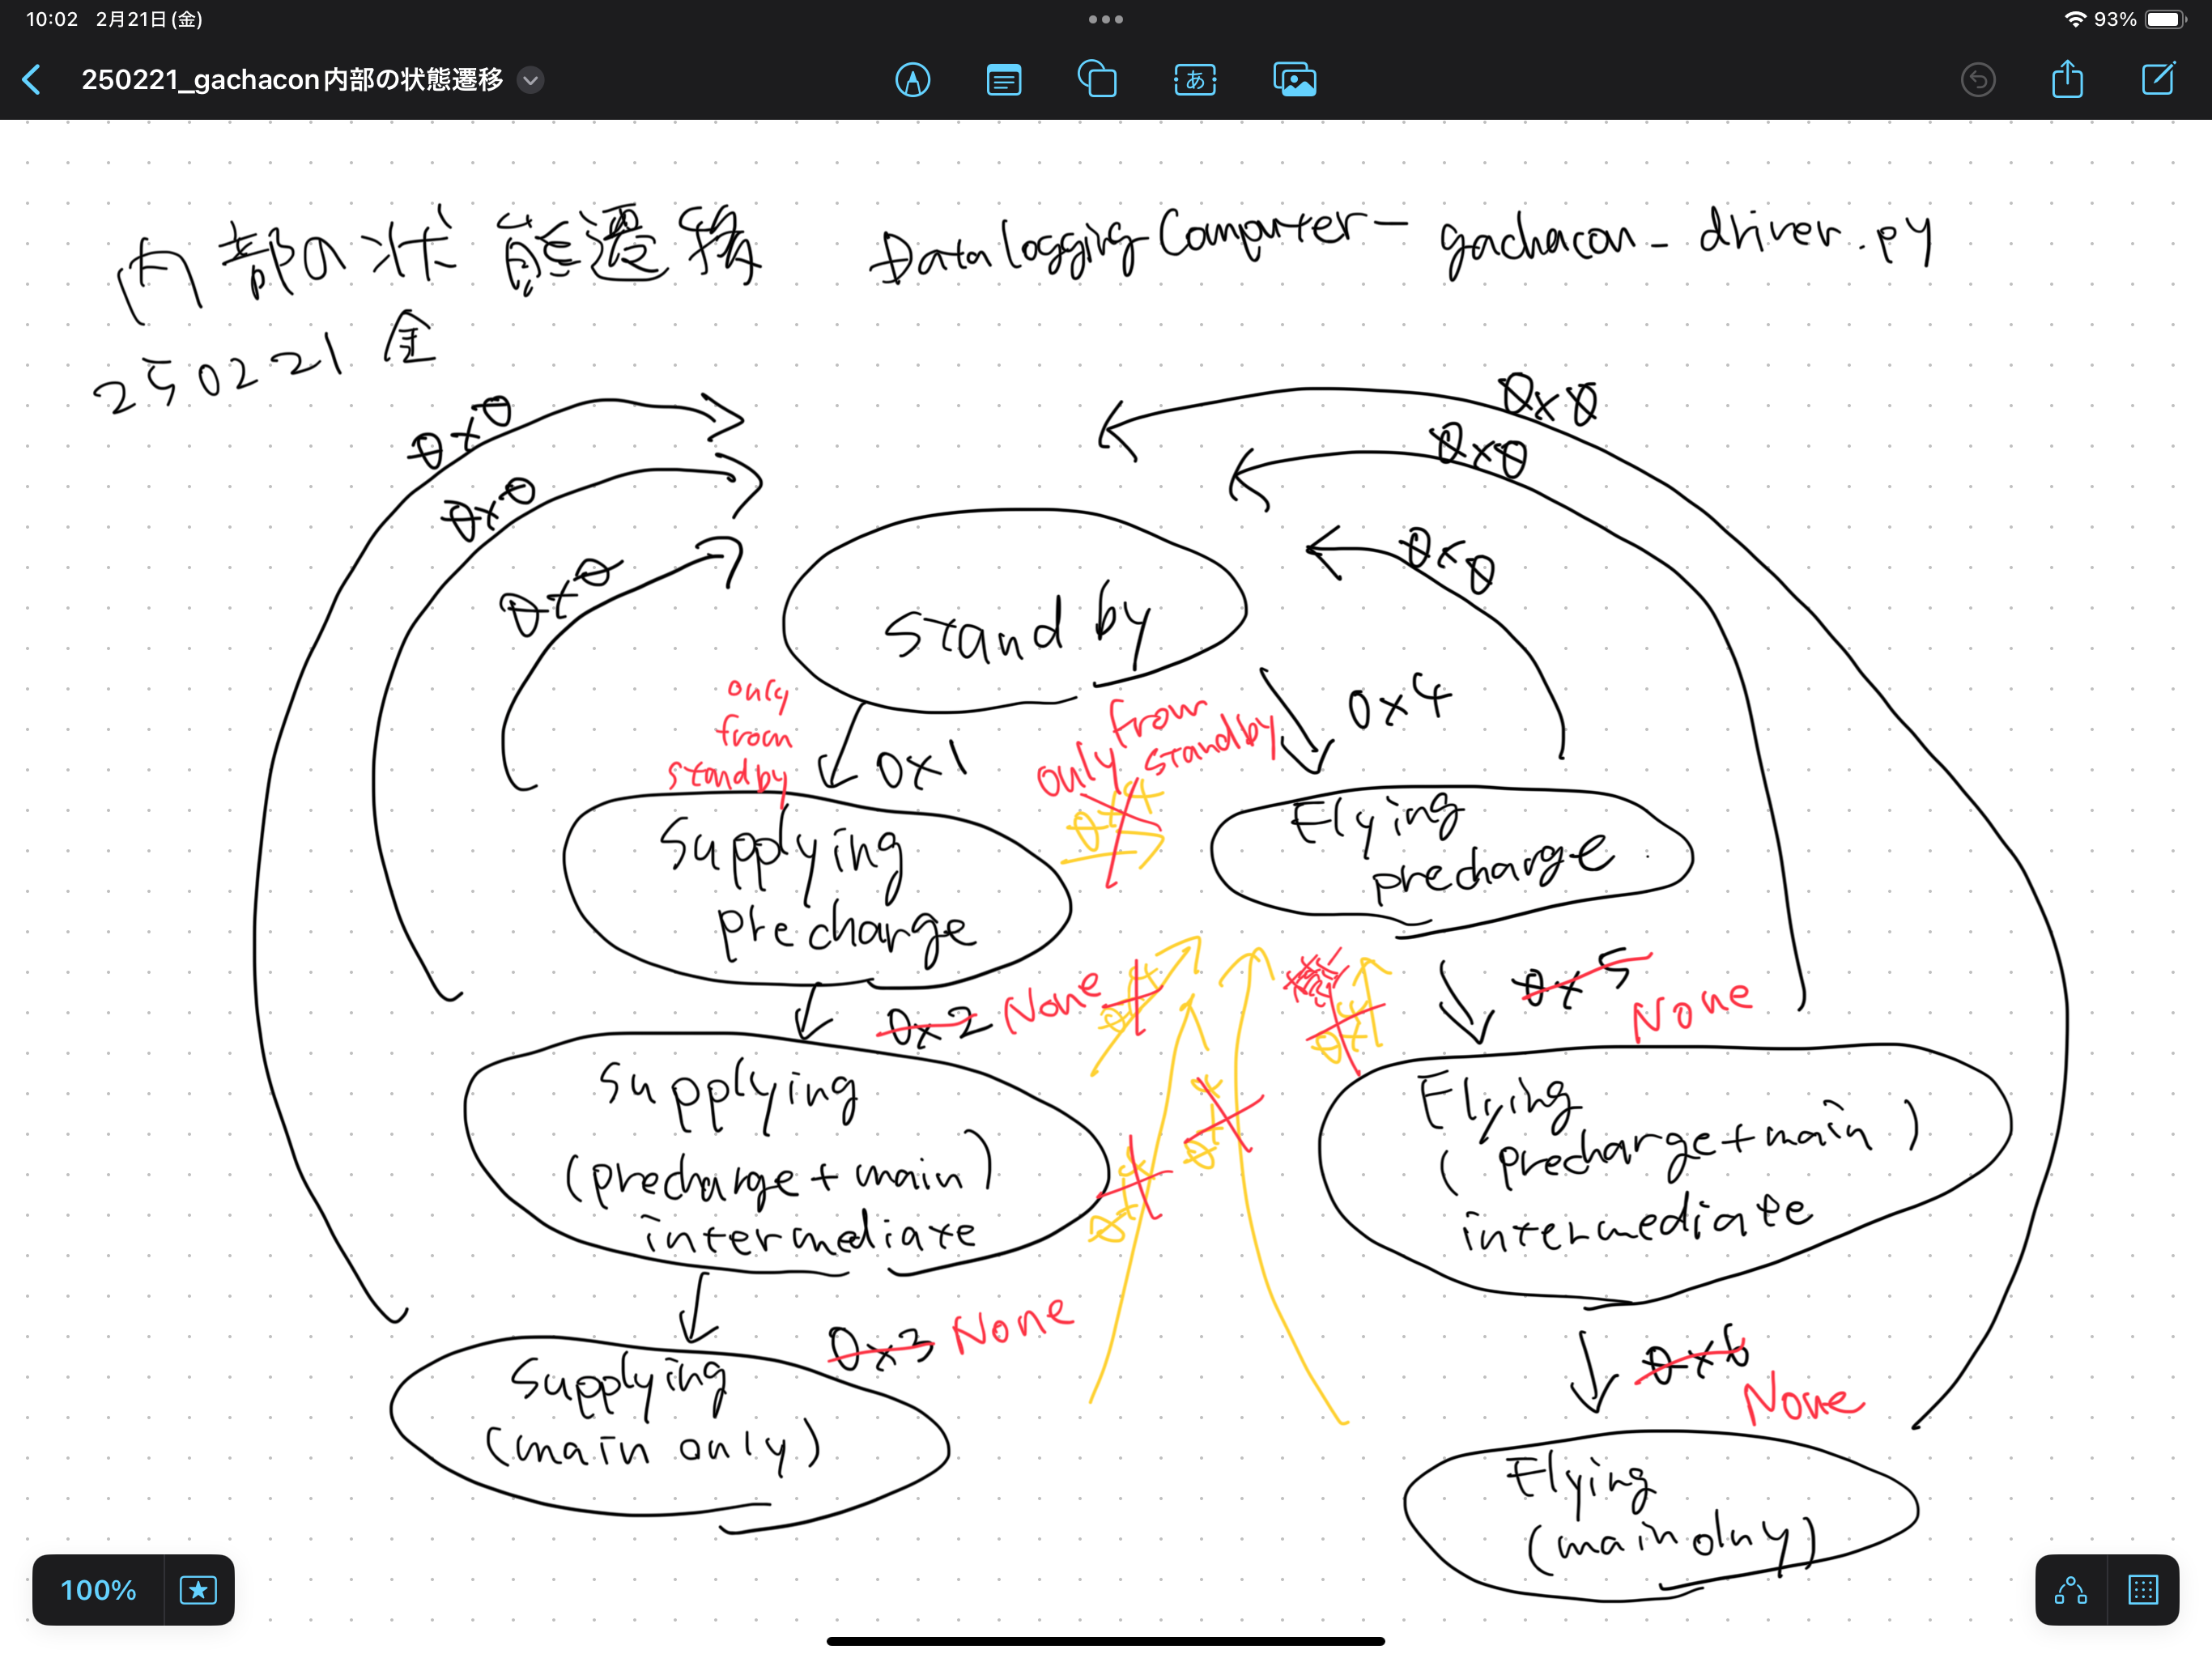 10:02 2月21日(金)
93%
250221_gachacon内部の状態遷移
あ
内部の状態遷移 Data logging Computer - gachacon_driver.py
250221 金
0x0
0x0
0x0
0x0
0x0
0x0
standby
only
from
standby
0x1
only from
standby
0x4
0x4
Supplying
precharge
Flying
precharge
0x2 None
0x4
0x4
0x5
None
Supplying
(precharge+main)
intermediate
0x4
0x4
Flying
(precharge+main)
intermediate
0x3 None
0x6
None
Supplying
(main only)
Flying
(main olny)
100%